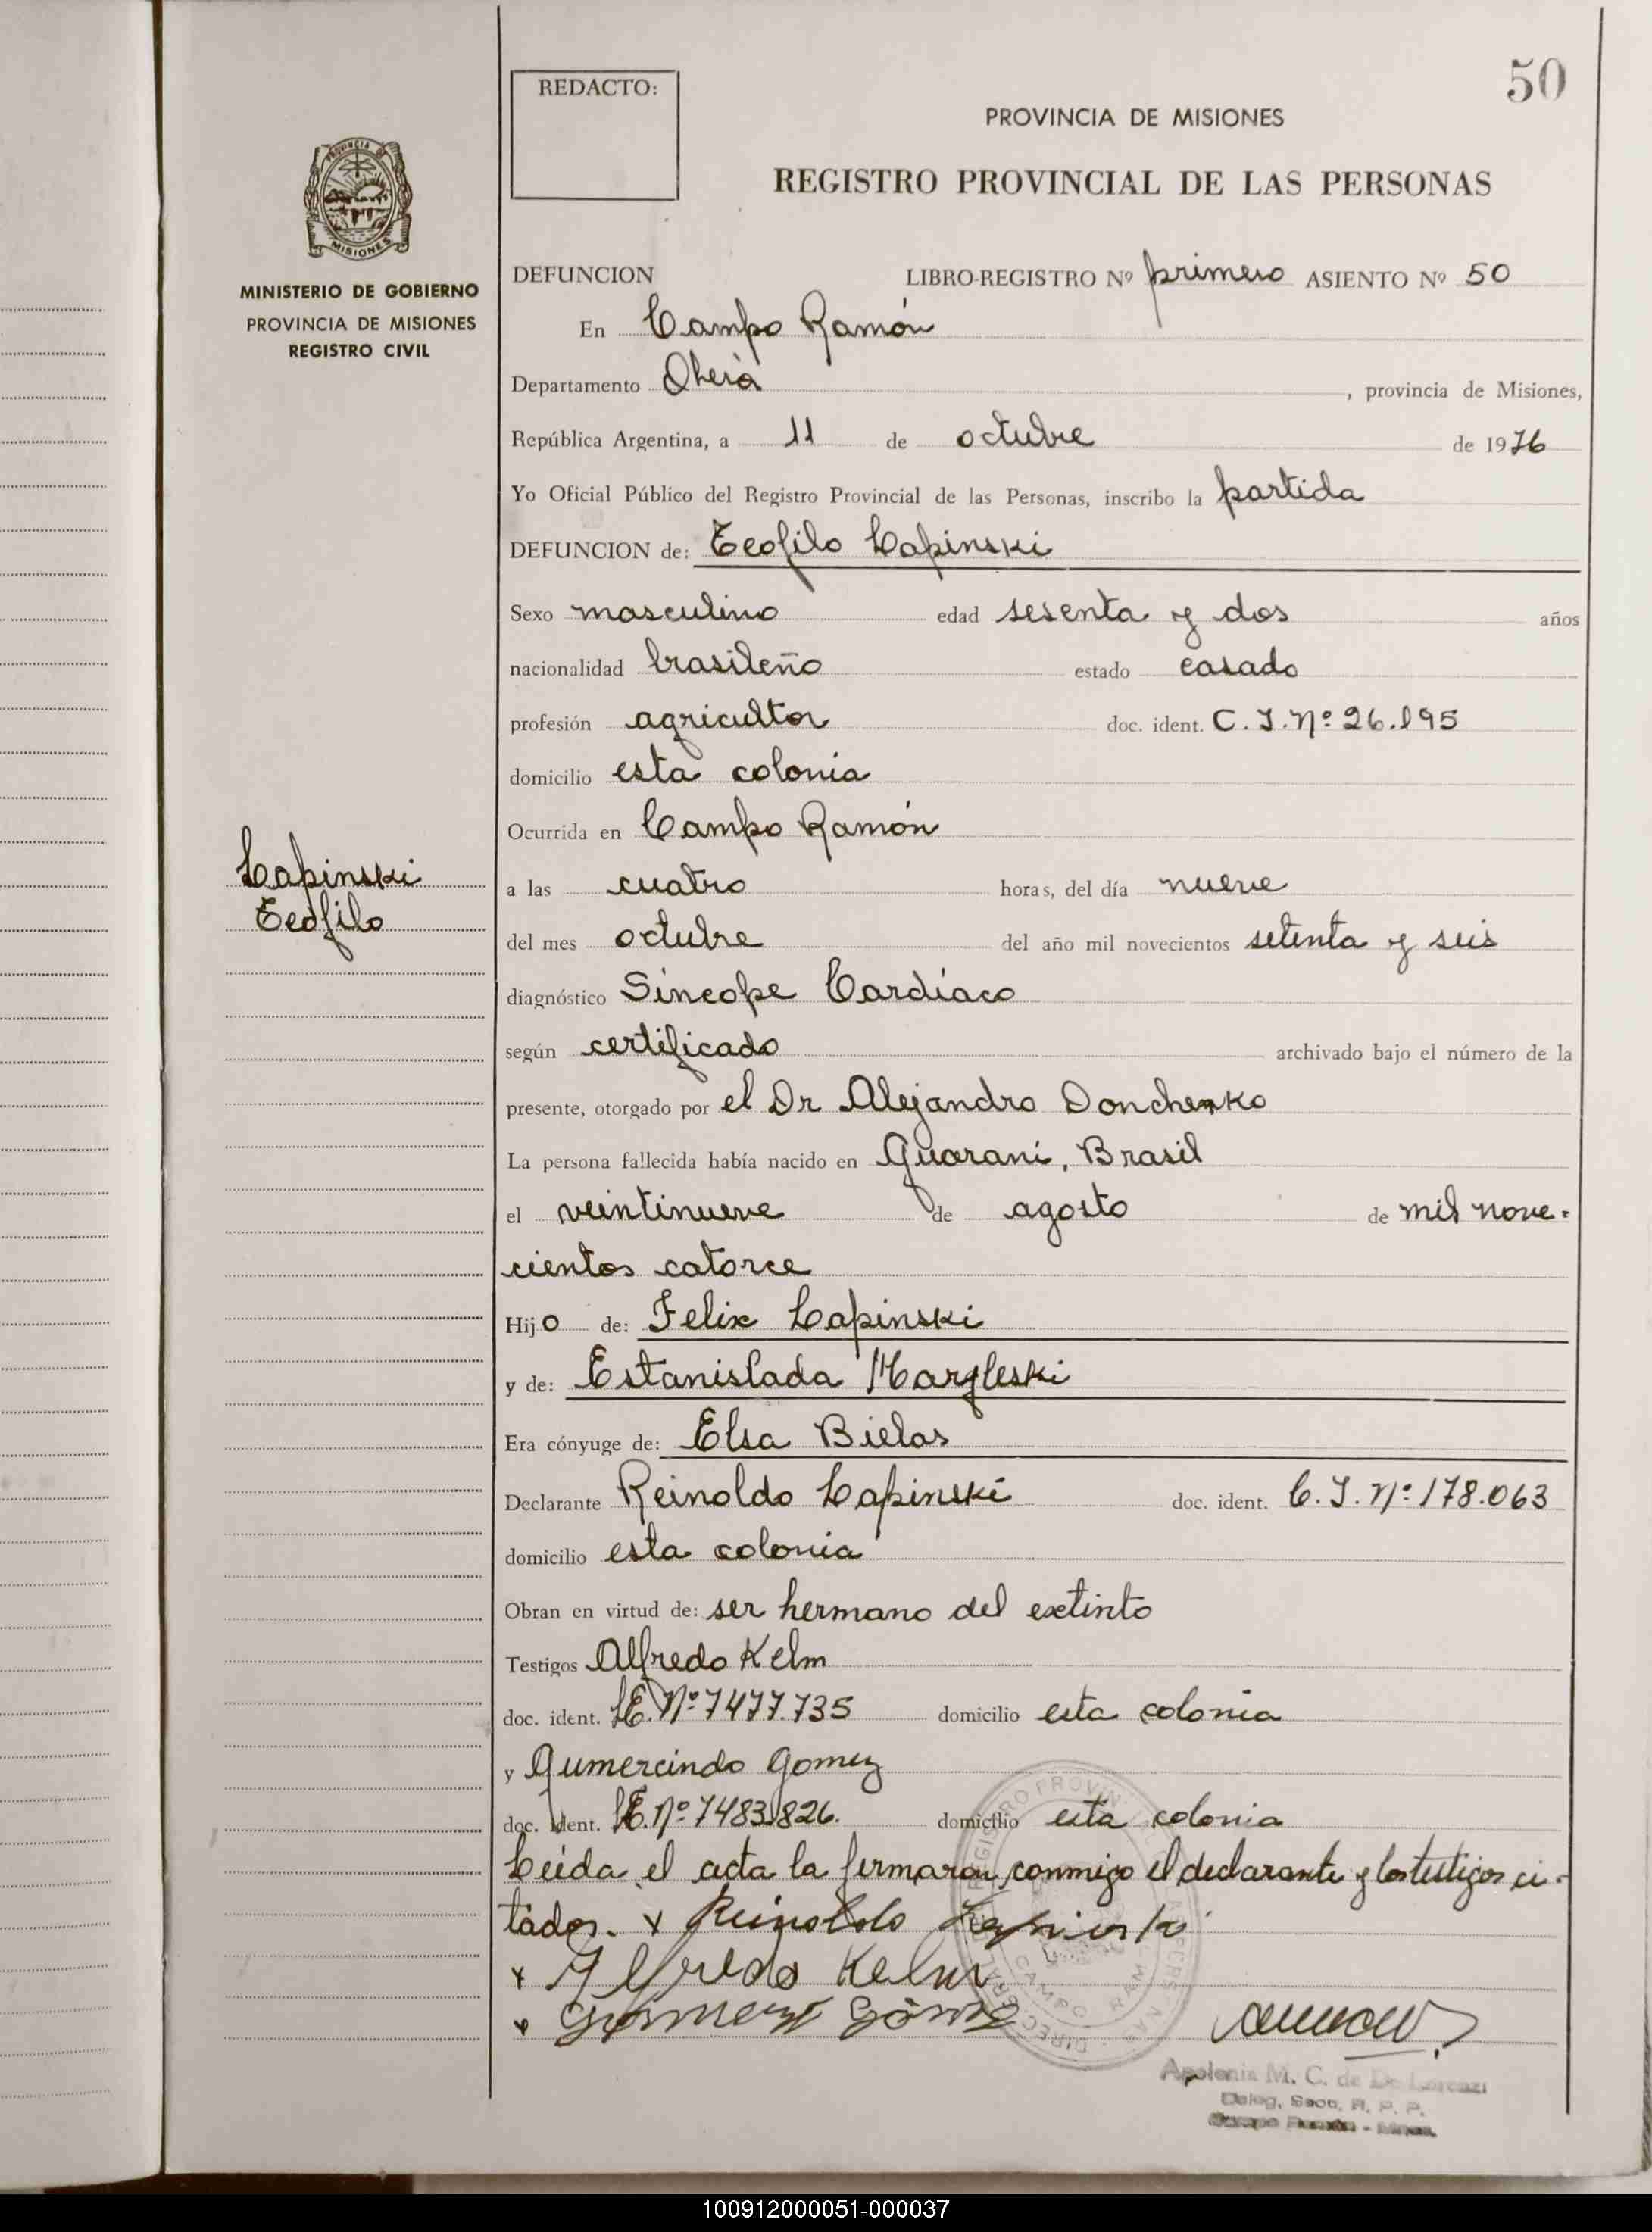 50
REDACTO:
PROVINCIA DE MISIONES
REGISTRO PROVINCIAL DE LAS PERSONAS
PROVINCIA DE
MISIONES
MINISTERIO DE GOBIERNO
PROVINCIA DE MISIONES
REGISTRO CIVIL
DEFUNCION LIBRO-REGISTRO Nº primero ASIENTO Nº 50
En Campo Ramón
Departamento Oberá, provincia de Misiones,
República Argentina, a 11 de octubre de 1976
Yo Oficial Público del Registro Provincial de las Personas, inscribo la partida
DEFUNCION de: Teofilo Lapinski
Sexo masculino edad sesenta y dos años
nacionalidad brasileño estado casado
profesión agricultor doc. ident. C.I.Nº 26.195
domicilio esta colonia
Ocurrida en Campo Ramón
Lapinski
Teofilo
a las cuatro horas, del día nueve
del mes octubre del año mil novecientos setenta y seis
diagnóstico Síncope Cardíaco
según certificado archivado bajo el número de la
presente, otorgado por el Dr Alejandro Donchenko
La persona fallecida había nacido en Guaraní, Brasil
el veintinueve de agosto de mil nove-
cientos catorce
Hijo de: Felix Lapinski
y de: Estanislada Margleski
Era cónyuge de: Elsa Bielas
Declarante Reinoldo Lapinski doc. ident. C.I.Nº 178.063
domicilio esta colonia
Obran en virtud de: ser hermano del extinto
Testigos Alfredo Kelm
doc. ident. LE.Nº 7477.735 domicilio esta colonia
y Gumercindo Gomez
doc. ident. LE.Nº 7483.826. domicilio esta colonia
Leída el acta la firmaron conmigo el declarante y los testigos ci-
tados. x Reinoldo Lapinski
x Alfredo Kelm
x Gomez
CAMPO RAM
Apolonia M. C. de De Lorenzi
Deleg. Secc. R. P. P.
Campo Ramón - Mnes.
100912000051-000037